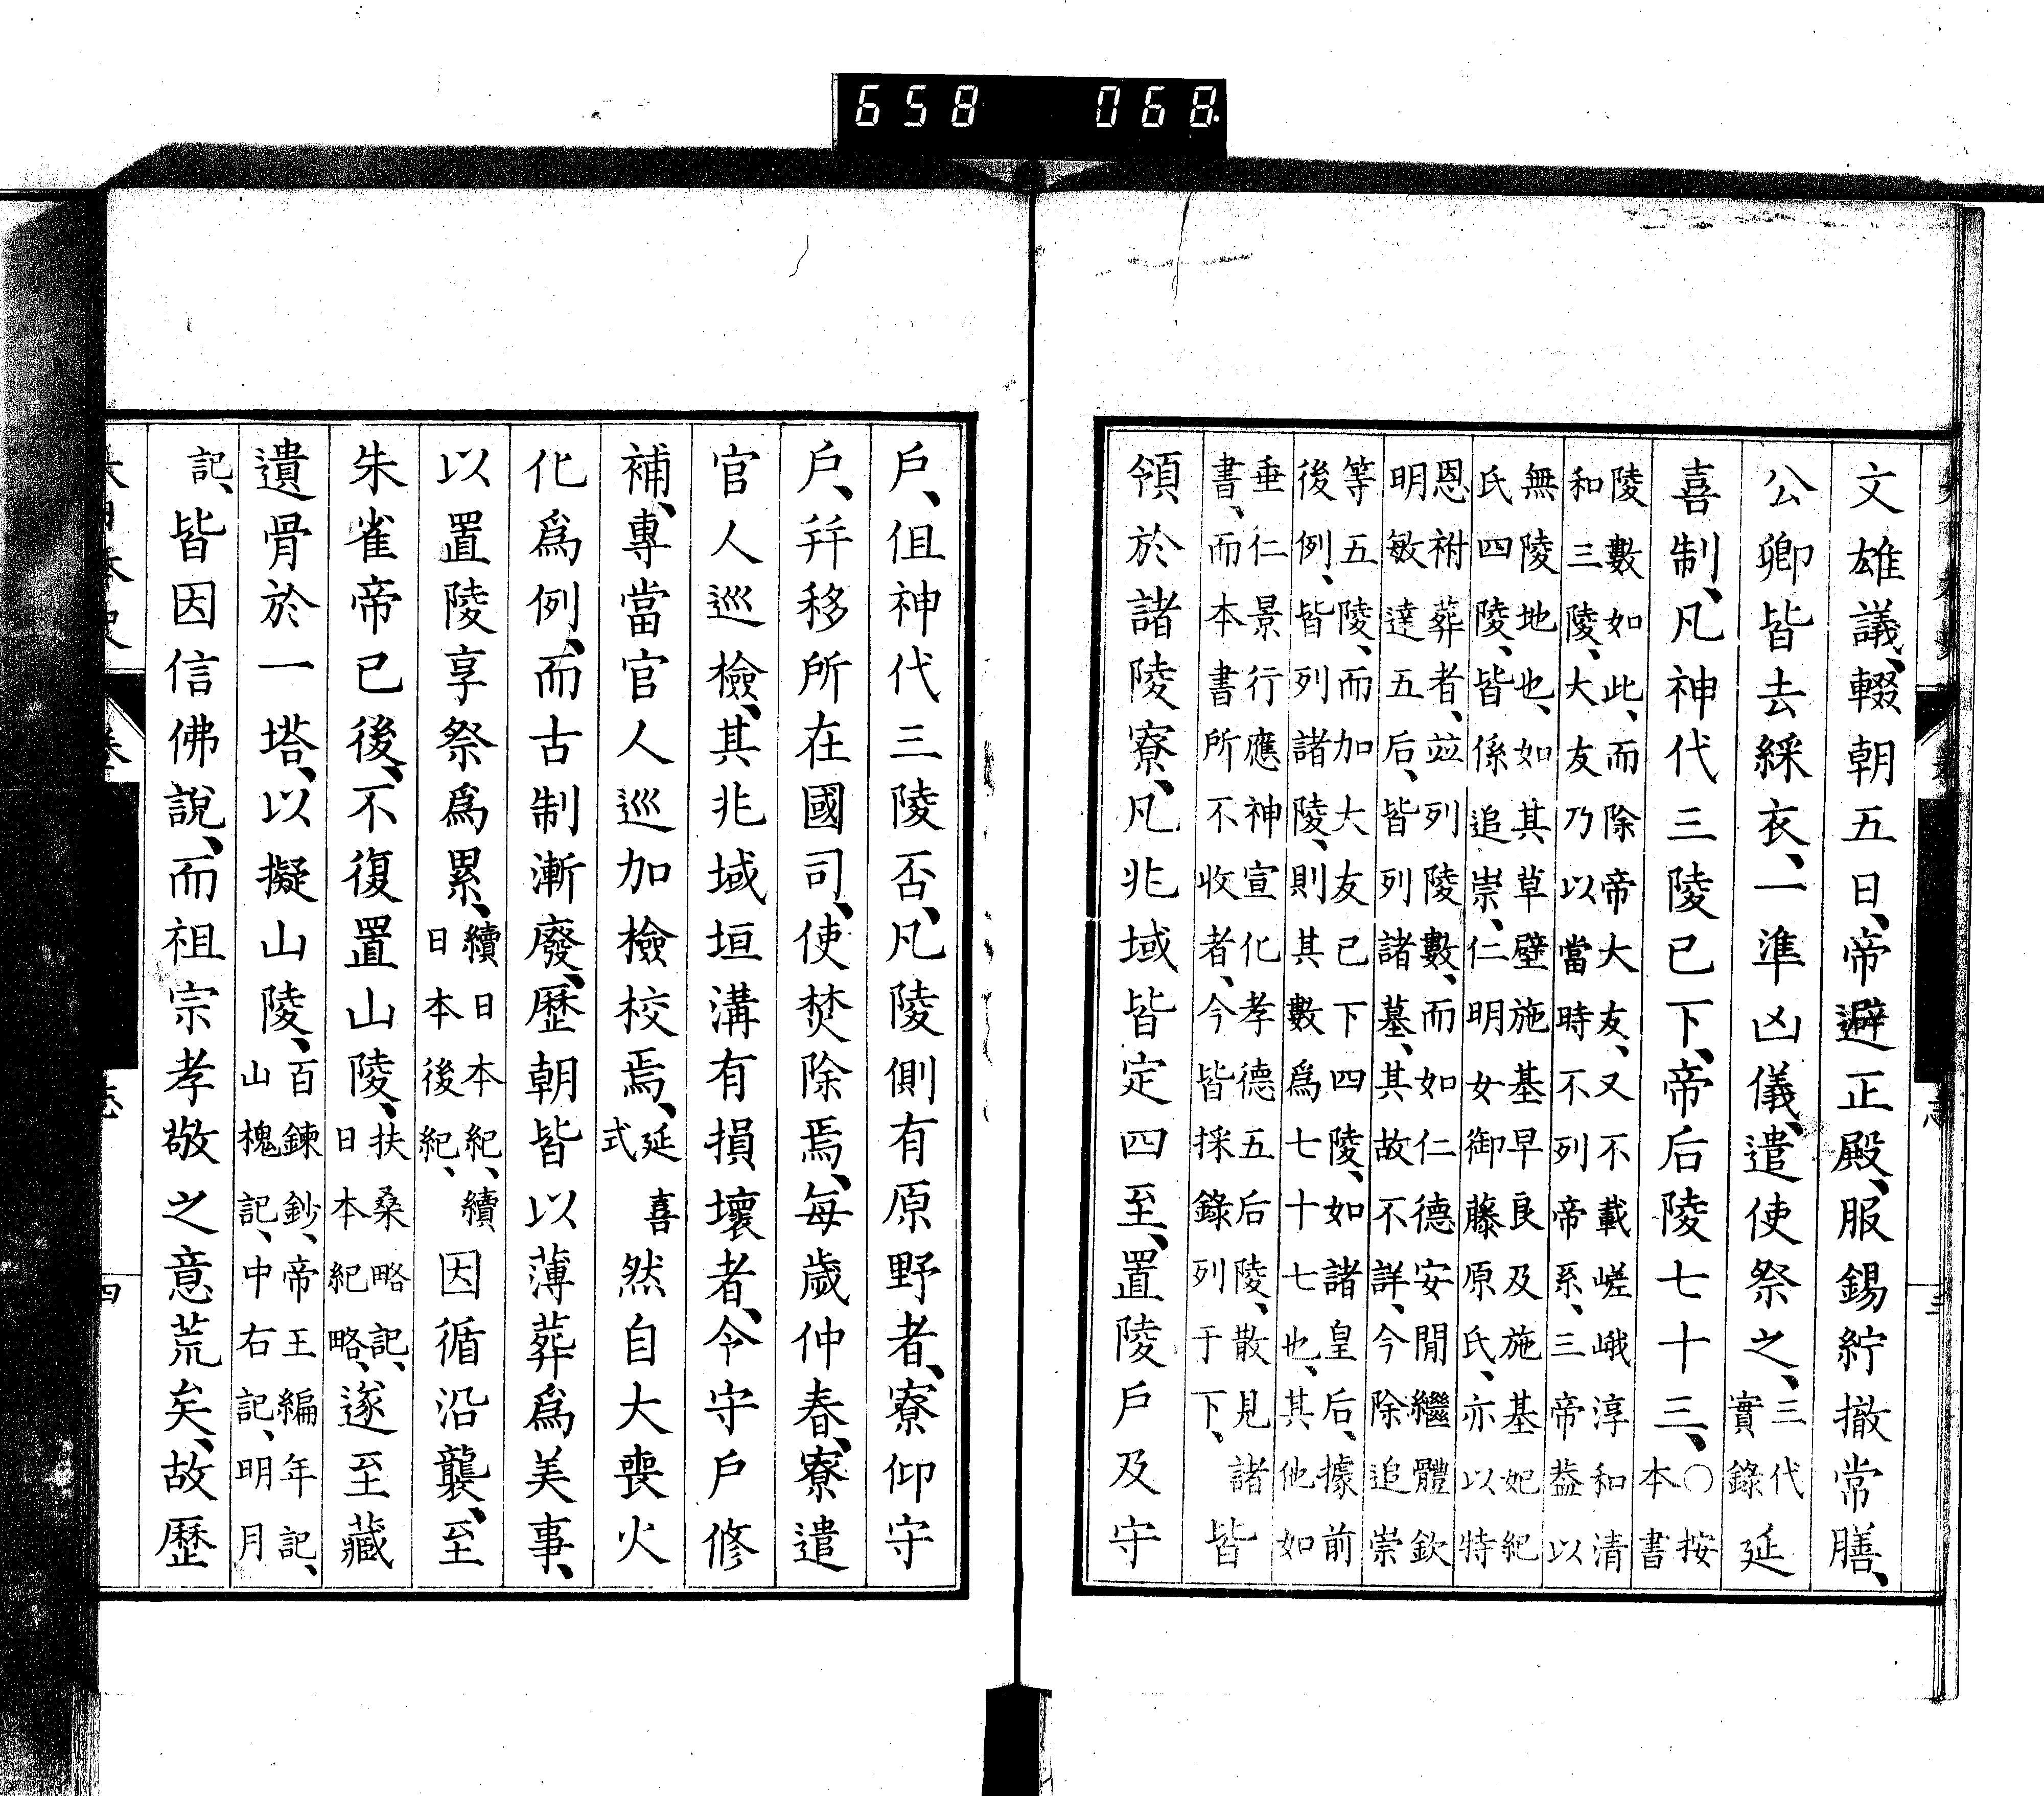 658 068
文雄議、輟朝五日、帝避正殿、服錫紵撤常膳、
公卿皆去綵衣、一準凶儀、遣使祭之、三代實錄延
喜制、凡神代三陵已下、帝后陵七十三、〇按本書
陵數如此、而除帝大友、又不載嵯峨淳和清
和三陵、大友乃以當時不列帝系、三帝葢以
無陵地也、如其草壁施基早良及施基妃紀
氏四陵、皆係追崇、仁明女御藤原氏、亦以特
恩祔葬者、竝列陵數、而如仁德安閒繼體欽
明敏達五后、皆列諸墓、其故不詳、今除追崇
等五陵、而加大友已下四陵、如諸皇后、據前
後例、皆列諸陵、則其數爲七十七也、其他如
垂仁景行應神宣化孝德五后陵、散見諸
書、而本書所不收者、今皆採錄列于下、皆
領於諸陵寮、凡兆域皆定四至、置陵戶及守
戶、但神代三陵否、凡陵側有原野者、寮仰守
戶、幷移所在國司、使焚除焉、每歲仲春、寮遣
官人巡檢、其兆域垣溝有損壞者、令守戶修
補、專當官人巡加檢校焉、延喜式然自大喪火
化爲例、而古制漸廢、歷朝皆以薄葬爲美事、
以置陵享祭爲累、續日本紀、續日本後紀、因循沿襲、至
朱雀帝已後、不復置山陵、扶桑略記、日本紀略、遂至藏
遺骨於一塔、以擬山陵、百鍊鈔、帝王編年記、山槐記、中右記、明月
記、皆因信佛說、而祖宗孝敬之意荒矣、故歷
四